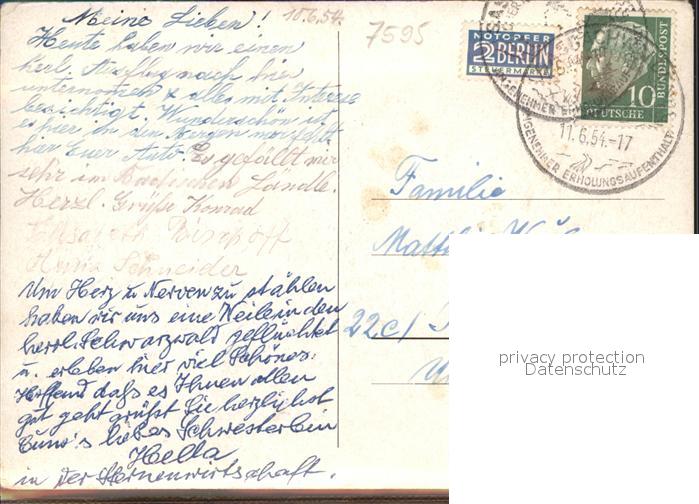 Meine Lieben! 10.6.54.
7595
Heute haben wir einen
herl. Ausflug nach hier
unternomen & alles mit Interesse
besichtigt. Wunderschön ist
es hier in den Bergen
hier Euer Auto. Es gefällt mir
sehr im Badischen Ländle.
Herzl. Grüße Konrad
Elisabeth Bischoff
Schneider
Um Herz u. Nerven zu stählen
haben wir uns eine Weile in den
herrl. Schwarzwald geflüchtet
u. erleben hier viel Schönes.
Hoffend daß es Ihnen allen
gut geht grüßt Sie herzlichst
liebes Schwesterlein
Hella
in der Sternenwirtschaft.
NOTOPFER
2 BERLIN
STEUERMARKE
DEUTSCHE BUNDESPOST
10
11.6.54.-17
ANGENEHMER ERHOLUNGSAUFENTHALT
Familie
22c/
privacy protection
Datenschutz